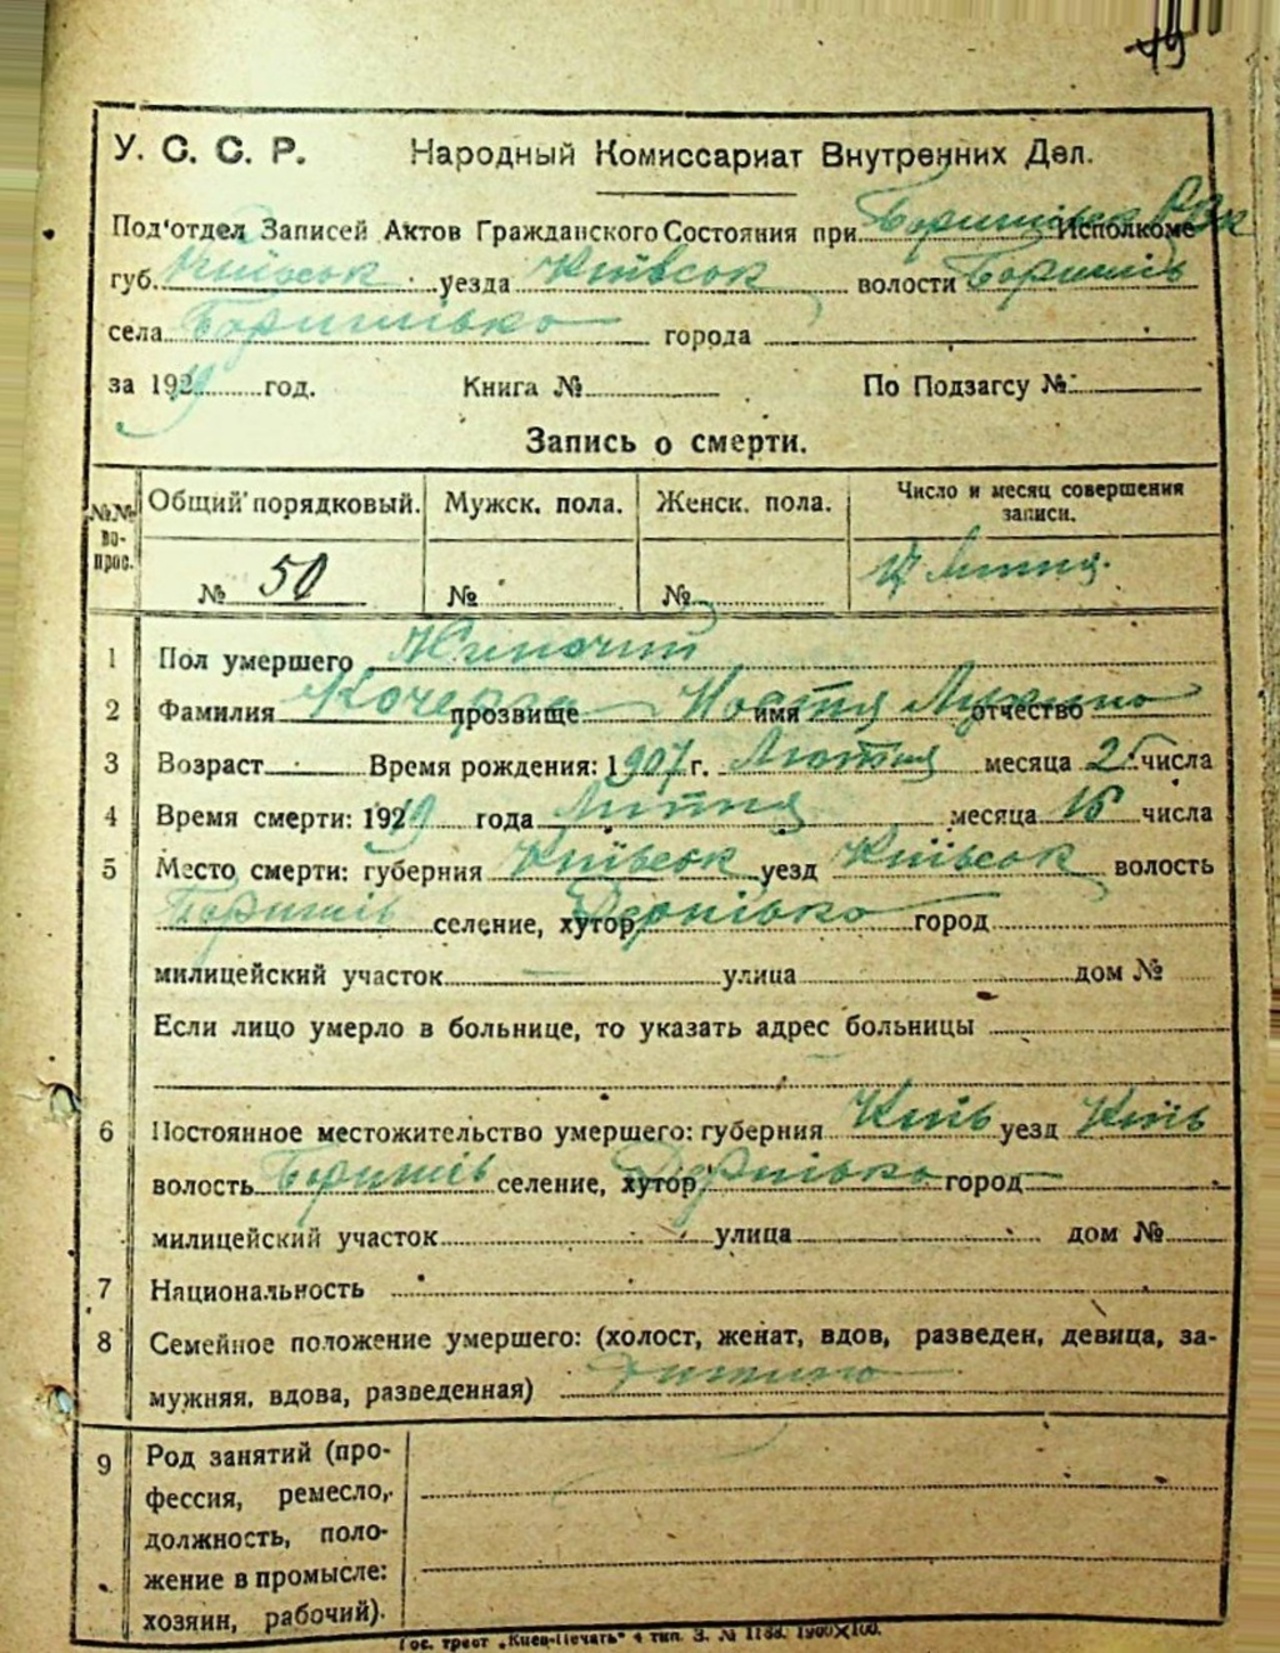 49
У. С. С. Р. Народный Комиссариат Внутренних Дел.
Под'отдел Записей Актов Гражданского Состояния при Исполкоме
губ. Київськ уезда Київськ волости Боришпів
села города
за 1919 год. Книга № По Подзагсу №
Запись о смерти.
№№ во-прос. Общий порядковый. Мужск. пола. Женск. пола. Число и месяц совершения записи.
№ 50 № № 17 Липня.
1 Пол умершего Жиночий
2 Фамилия прозвище Настя имя отчество
3 Возраст Время рождения: 1907 г. Лютня месяца 25 числа
4 Время смерти: 1919 года Липня месяца 16 числа
5 Место смерти: губерния Київськ уезд Київськ волость
селение, хутор город
милицейский участок улица дом №
Если лицо умерло в больнице, то указать адрес больницы
6 Постоянное местожительство умершего: губерния Київ уезд Київ
волость селение, хутор город
милицейский участок улица дом №
7 Национальность
8 Семейное положение умершего: (холост, женат, вдов, разведен, девица, за-
мужняя, вдова, разведенная)
9 Род занятий (про-
фессия, ремесло,
должность, поло-
жение в промысле:
хозяин, рабочий).
Гос. трест „Киев-Печать" 4 тип. З. № 1188. 1900×100.